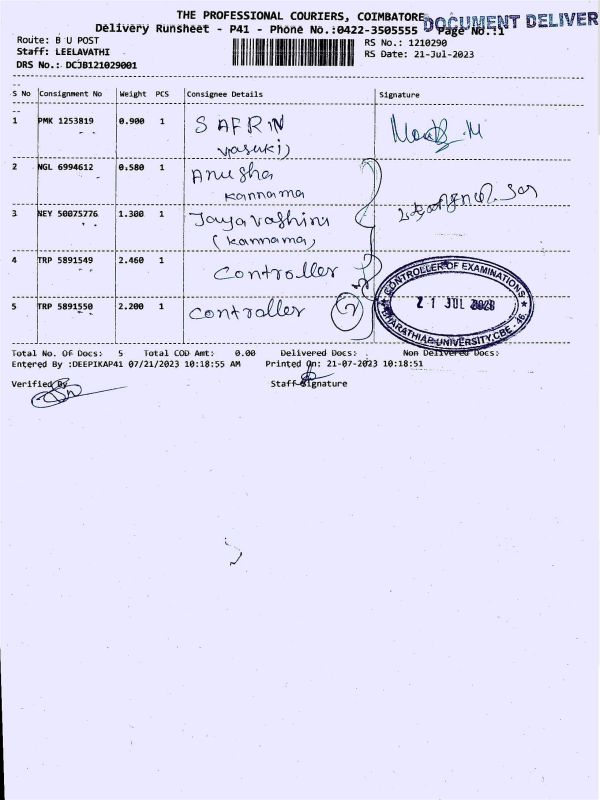 THE PROFESSIONAL COURIERS, COIMBATORE
DOCUMENT DELIVER
Delivery Runsheet - P41 - Phone No.:0422-3505555 Page No.:1
Route: B U POST
RS No.: 1210290
Staff: LEELAVATHI
RS Date: 21-Jul-2023
DRS No.: DCJB121029001
S No Consignment No Weight PCS Consignee Details Signature
1 PMK 1253819 0.900 1 SAFRIN
vasuki)
2 NGL 6994612 0.580 1 Anusha
kannama
3 NEY 50075776 1.300 1 Jayavashini
(kannama)
4 TRP 5891549 2.460 1 Controller
5 TRP 5891550 2.200 1 controller 2
CONTROLLER OF EXAMINATIONS
21 JUL 2023
BHARATHIAR UNIVERSITY, CBE - 46.
Total No. Of Docs: 5 Total COD Amt: 0.00 Delivered Docs: Non Delivered Docs:
Entered By :DEEPIKAP41 07/21/2023 10:18:55 AM Printed On: 21-07-2023 10:18:51
Verified By Staff Signature